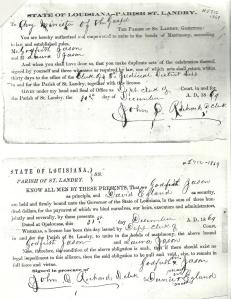 STATE OF LOUISIANA—PARISH ST. LANDRY.
To Any Minister of the Gospel
THE PARISH OF ST. LANDRY, GREETING:
You are hereby authorized and empowered to unite in the bonds of Matrimony, according
to law and established rules,
M Godfrith Jason
and Laura Jason
And when you shall have done so, that you make duplicate acts of the celebration thereof,
signed by yourself and three witnesses as required by law, one of which you shall return, within
thirty days to the office of the Clerk of Judicial District Court
and for the Parish of St. Landry, together with this license.
Given under my hand and Seal of Office as Dept. Clerk of Court in
the Parish of St. Landry, the 30th day of December A. D. 1869
John D. Richards D. Clk
STATE OF LOUISIANA,
PARISH OF ST. LANDRY.
KNOW ALL MEN BY THESE PRESENTS, That we Godfrith Jason
as principal, and David England as security,
are held and firmly bound unto the Governor of the State of Louisiana, in the sum of three hundred dollars, for the payment of which we bind ourselves, our heirs, executors and administrators,
jointly and severally, by these presents.
Dated at Opelousas, this day of December A. D. 1869
Whereas, a license has been this day issued by Dept. Clerk of Court
in and for the Parish of St. Landry to unite in the bonds of matrimony the above bound
Godfrith Jason and Laura Jason
Now, therefore, the condition of the above obligation is such, that if there should exist no
legal impediment to this alliance, then the said obligation to be null and void, else to remain in
full force and virtue.
Signed in presence of
John D. Richards D. Clk
Godfrith Jason
David England